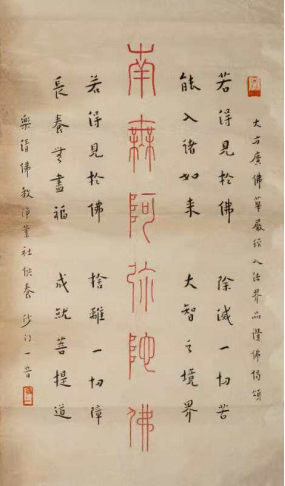 大方廣佛華嚴經入法界品讚佛偈頌
若得見於佛 除滅一切苦
能入諸如來 大智之境界
南無阿弥陀佛
若得見於佛 捨離一切障
長養無盡福 成就菩提道
樂清佛教淨業社供養 沙門一音